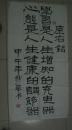 座右铭
学习是人生增知的充电器
心态是人生健康的调节器
甲午年